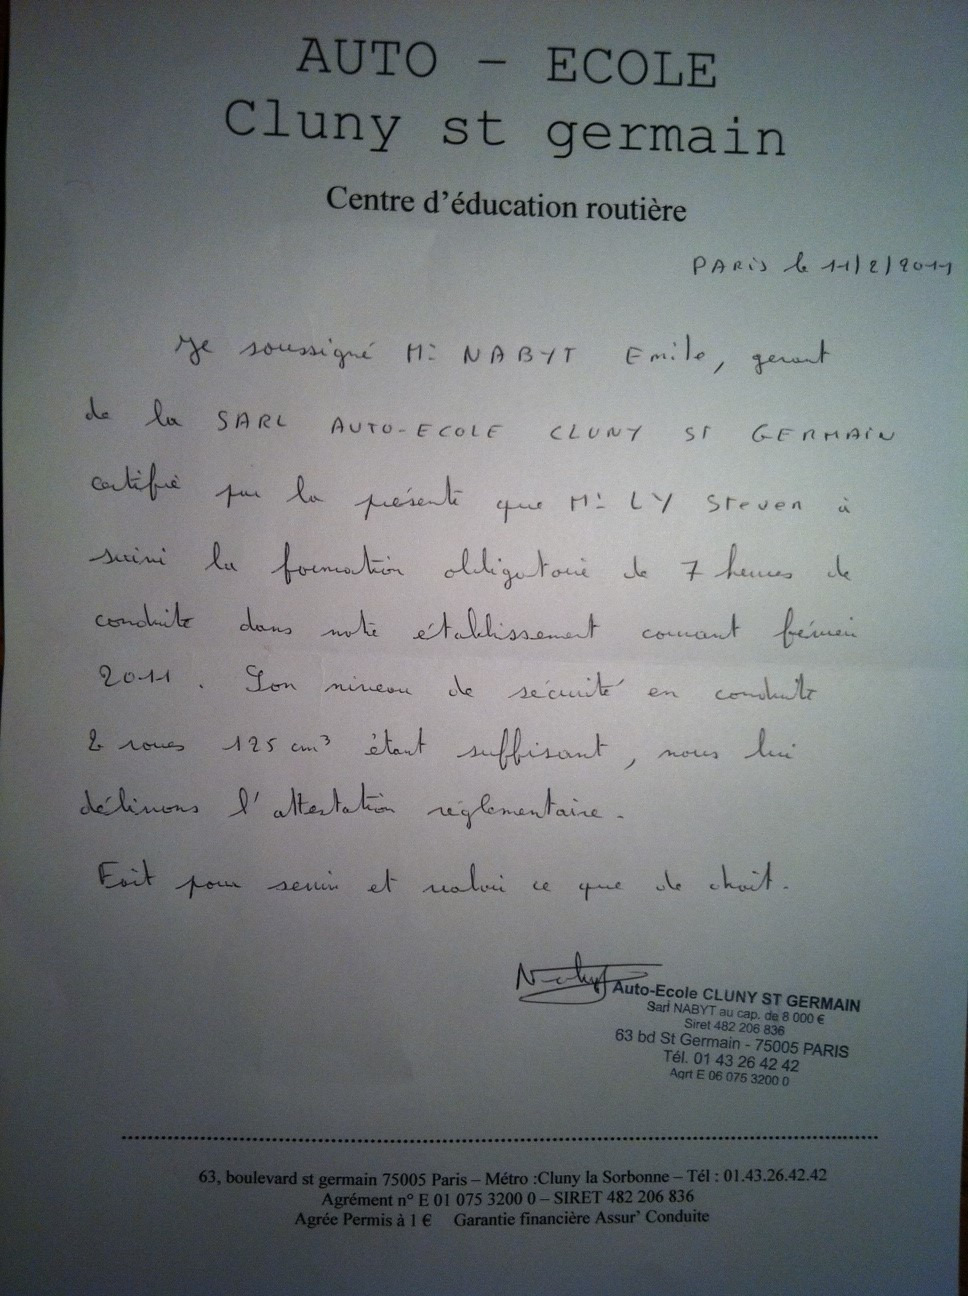 AUTO – ECOLE
Cluny st germain
Centre d'éducation routière
PARIS le 11/2/2011
Je soussigné Mr NABYT Emile, gerant
de la SARL AUTO-ECOLE CLUNY ST GERMAIN
certifie par la présente que Mr LY Steven à
suivi la formation obligatoire de 7 heures de
conduite dans notre établissement courant février
2011. Son niveau de sécurité en conduite
2 roues 125 cm³ étant suffisant, nous lui
délivrons l'attestation réglementaire.
Fait pour servir et valoir ce que de droit.
Nabyt
Auto-Ecole CLUNY ST GERMAIN
Sarl NABYT au cap. de 8 000 €
Siret 482 206 836
63 bd St Germain - 75005 PARIS
Tél. 01 43 26 42 42
Agrt E 06 075 3200 0
63, boulevard st germain 75005 Paris – Métro :Cluny la Sorbonne – Tél : 01.43.26.42.42
Agrément n° E 01 075 3200 0 – SIRET 482 206 836
Agrée Permis à 1 € Garantie financière Assur' Conduite